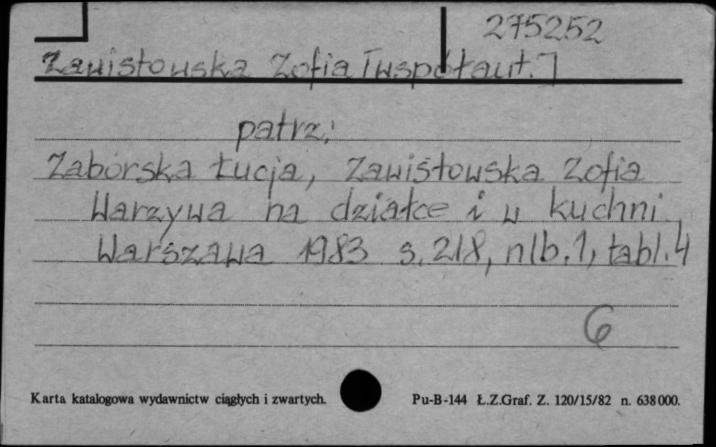 275252
Zawistowska Zofia [współaut.]
patrz:
Zaborska Łucja, Zawistowska Zofia
Warzywa na działce i w kuchni.
Warszawa 1983 s. 218, nlb. 1, tabl. 4
6
Karta katalogowa wydawnictw ciągłych i zwartych. Pu-B-144 Ł.Z.Graf. Z. 120/15/82 n. 638000.